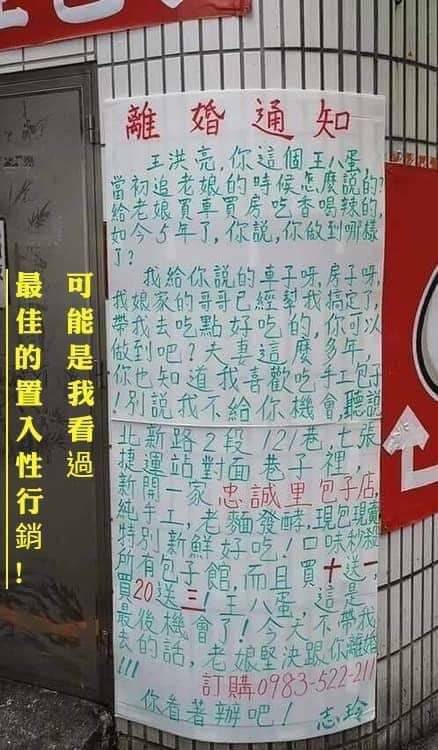 離婚通知
王洪亮,你這個王八蛋
當初追老娘的時候怎麼說的?
給老娘買車買房吃香喝辣的,
如今5年了,你說,你做到哪樣
了?
我給你說的車子呀,房子呀,
我娘家的哥哥已經幫我搞定了,
帶我去吃點好吃的,你可以
做到吧?夫妻這麼多年,
你也知道我喜歡吃手工包子
!別說我不給你機會,聽說
北新路2段121巷,七張
捷運站對面巷子裡,
新開一家忠誠里包子店,
純手工,老麵發酵,現包現賣
特別新鮮好吃!口味秒殺
所有包子館,而且買十送一,
買20送三!王八蛋,這是
最後機會了!今天不帶我
去的話,老娘堅決跟你離婚
!!!
訂購0983-522-211
你看著辦吧! 志玲
可能是我看過
最佳的置入性行銷!